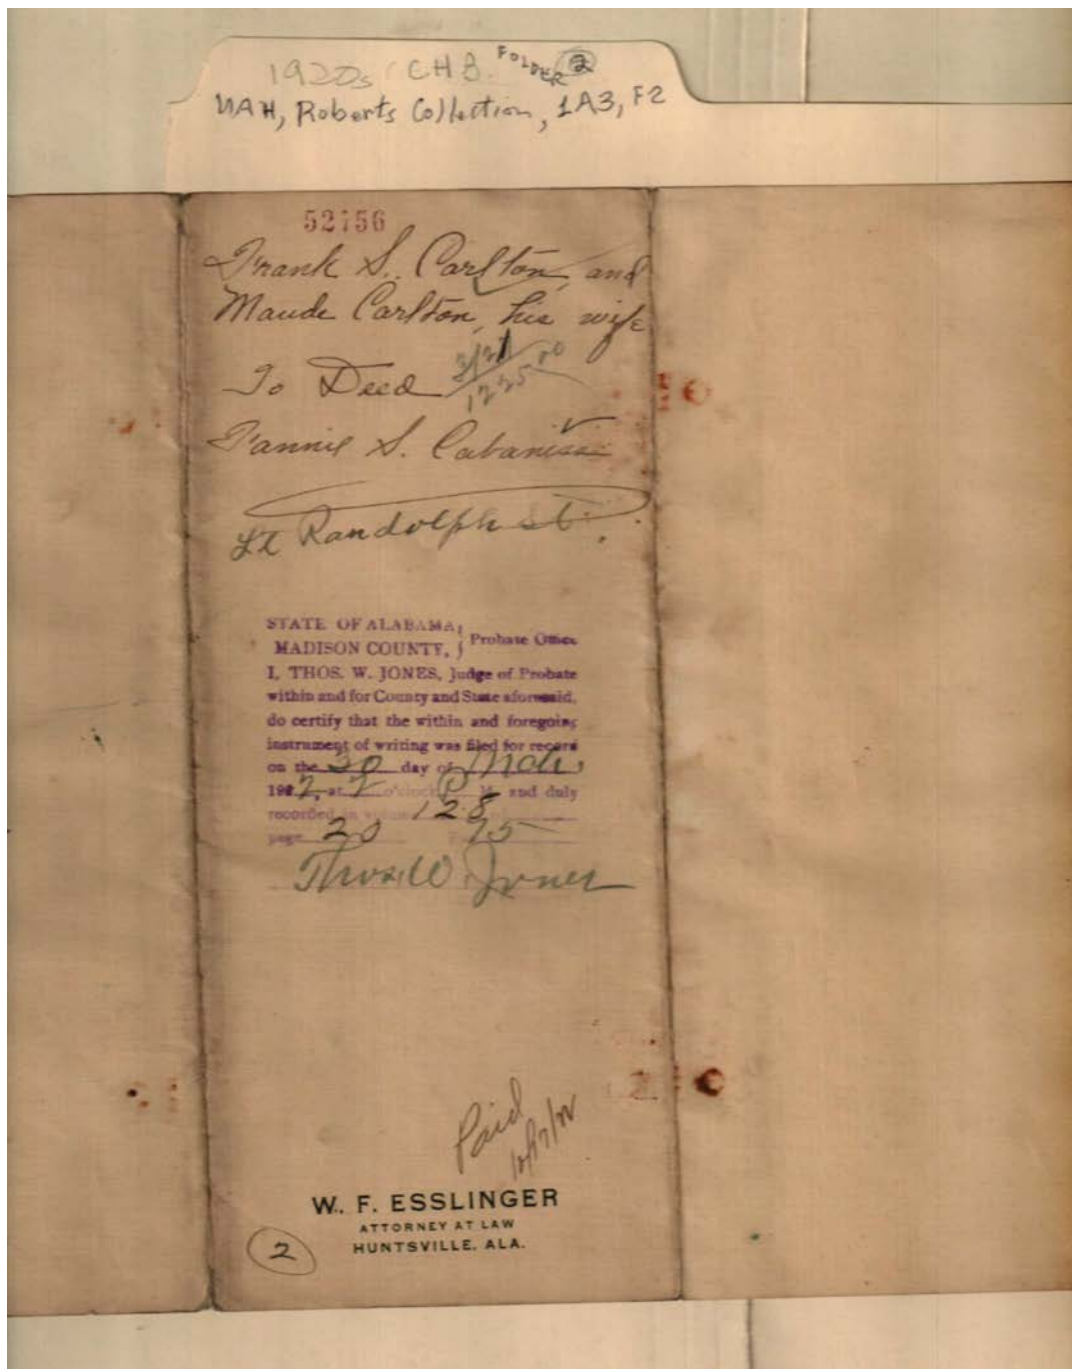 1920s CHB. FOLDER 2
UAH, Roberts Collection, 1A3, F2
52756
Frank S. Carlton, and
Maude Carlton, his wife
To Deed
1225.00
Fannie S. Cabaniss
Lt Randolph St.
STATE OF ALABAMA,
MADISON COUNTY, } Probate Office
I, THOS. W. JONES, Judge of Probate
within and for County and State aforesaid,
do certify that the within and foregoing
instrument of writing was filed for record
on the 30 day of Mch.
192 at 2 o'clock P M and duly
recorded in volume 128
page 20
Thos. W. Jones
Paid
W. F. ESSLINGER
ATTORNEY AT LAW
HUNTSVILLE, ALA.
2